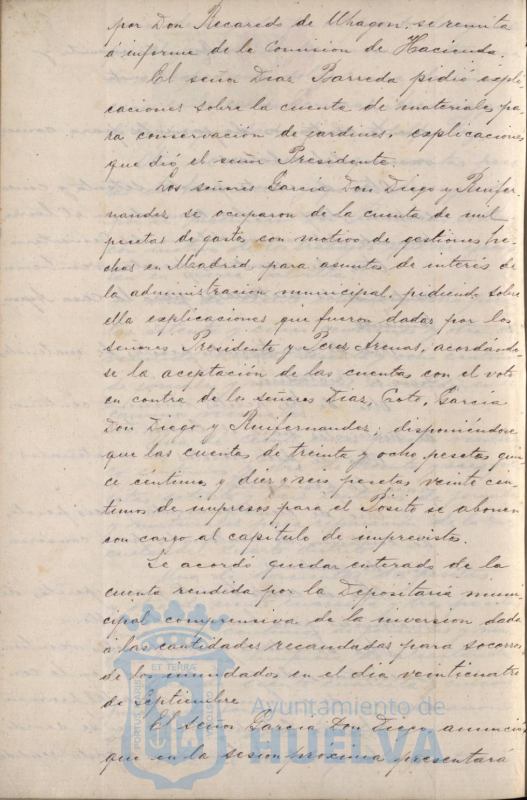 por Don Recaredo de Uhagon, se remita
á informe de la Comision de Hacienda.
El señor Diaz Barreda pidió expli-
caciones sobre la cuenta de materiales pa
ra conservación de jardines, explicaciones
que dió el señor Presidente.
Los señores Garcia Don Diego y Ruifer-
nandez se ocuparon de la cuenta de mil
pesetas de gastos con motivo de gestiones he-
chas en Madrid, para asuntos de interés de
la administracion municipal, pidiendo sobre
ella explicaciones que fueron dadas por los
señores Presidente y Perez Arenas, acordándo-
se la aceptación de las cuentas con el voto
en contra de los señores Diaz, Coto, Garcia
Don Diego y Ruifernandez; disponiéndose
que las cuentas de treinta y ocho pesetas quin
ce céntimos y diez y seis pesetas veinte cen-
timos de impresos para el Pósito se abonen
con cargo al capitulo de imprevistos.
Se acordó quedar enterado de la
cuenta rendida por la Depositaria muni-
cipal comprensiva de la inversion dada
á las cantidades recaudadas para socorros
de los inundados en el dia veinticuatro
de Septiembre.
El señor Garcia Don Diego anunció
que en la sesión proxima presentará
ET TERRÆ
PORTUS MARIS
CUSTODIA
Ayuntamiento de
HUELVA